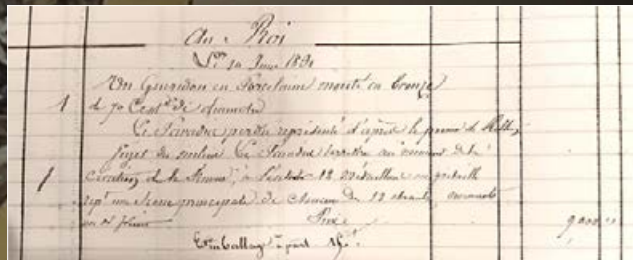 Au Roi
Von 30 Juin 1830
1 Un Gueridon en Porcelaine monté en Bronze
de 70 Centres de diametre
Le Paradis perdu représenté d'après le poeme de Milton,
Sujet du milieu Le Paradis terrestre au moment de la
1 Création de la femme, 12 médaillons
rept une Scene principale de chacun des 12 chants,
Prix 9,000
Emballage à part